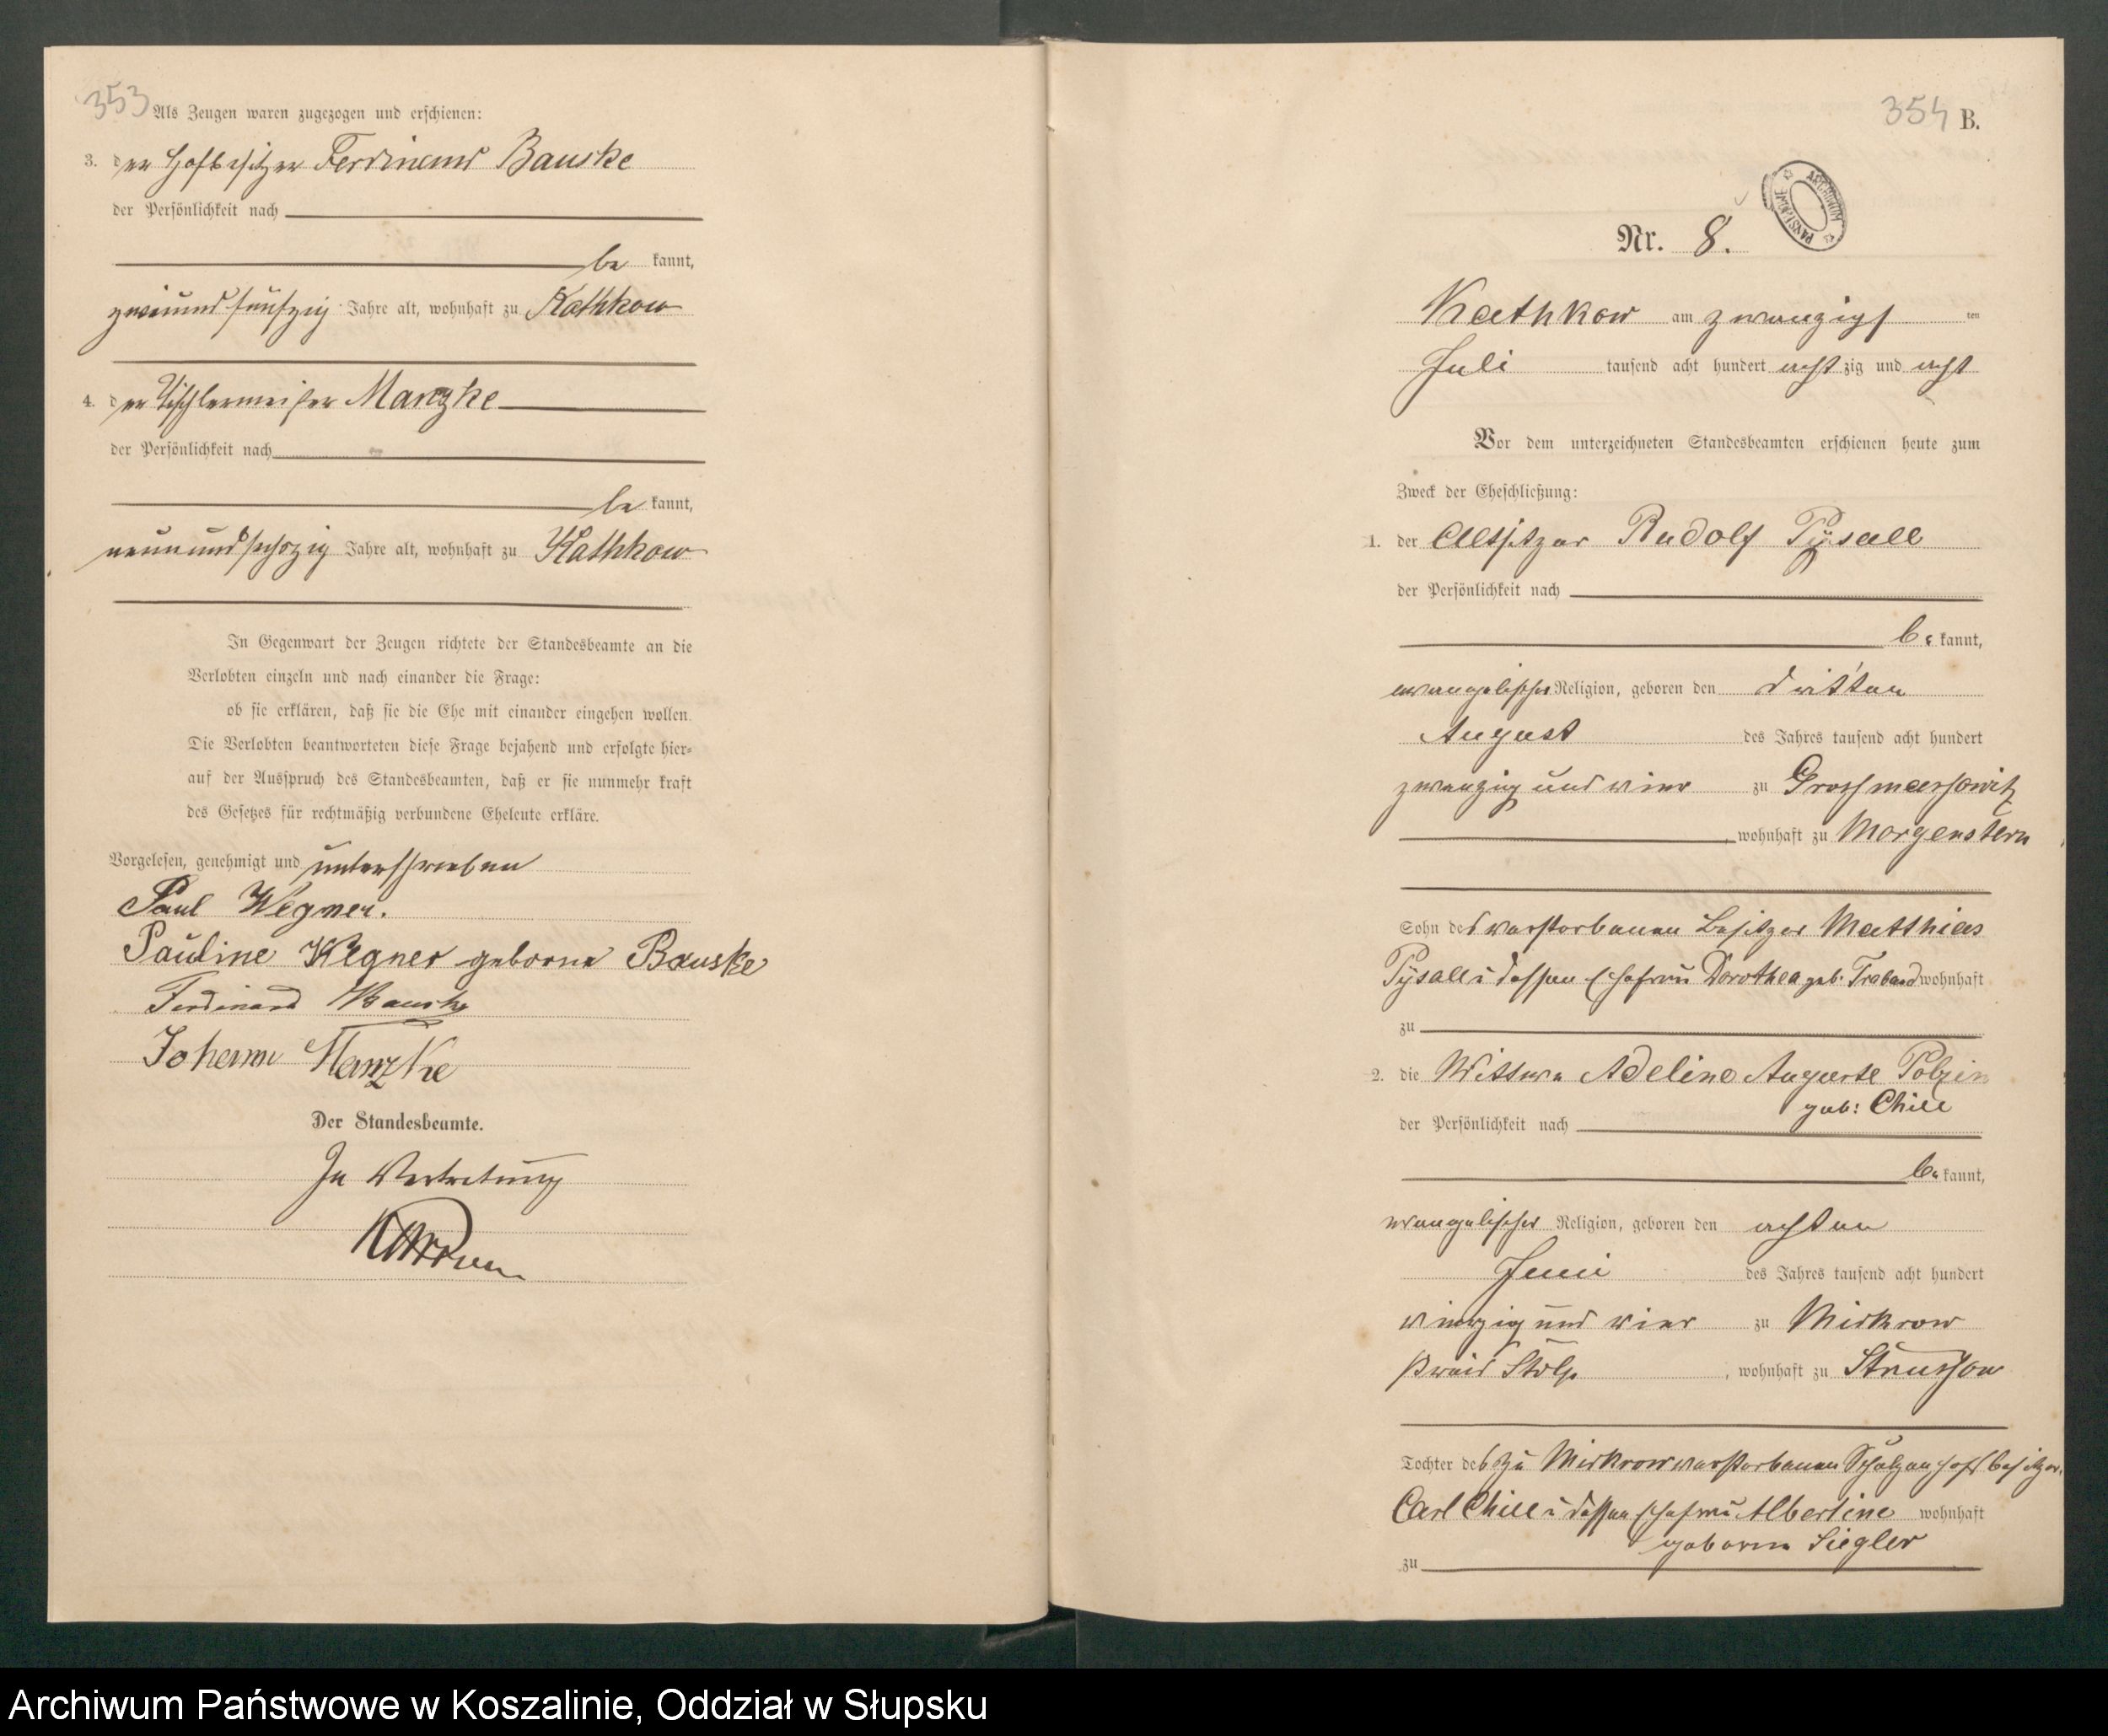 353
Als Zeugen waren zugezogen und erschienen:
3. der Hofbesitzer Ferdinand Bauske
der Persönlichkeit nach
be kannt,
zweiundfünfzig Jahre alt, wohnhaft zu Kathkow
4. der Tischlermeister Manzke
der Persönlichkeit nach
be kannt,
neunundsechszig Jahre alt, wohnhaft zu Kathkow
In Gegenwart der Zeugen richtete der Standesbeamte an die
Verlobten einzeln und nach einander die Frage:
ob sie erklären, daß sie die Ehe mit einander eingehen wollen.
Die Verlobten beantworteten diese Frage bejahend und erfolgte hier-
auf der Ausspruch des Standesbeamten, daß er sie nunmehr kraft
des Gesetzes für rechtmäßig verbundene Eheleute erkläre.
Vorgelesen, genehmigt und unterschrieben
Paul Wegner.
Pauline Wegner geborne Bauske
Ferdinand Bauske
Johann Manzke
Der Standesbeamte.
In Vertretung
354 B.
ARCHIWUM PAŃSTWOWE
Nr. 8.
Kathkow am zwanzigs ten
Juli tausend acht hundert acht zig und acht
Vor dem unterzeichneten Standesbeamten erschienen heute zum
Zweck der Eheschließung:
1. der Altsitzer Rudolf Pÿsall
der Persönlichkeit nach
be kannt,
evangelischer Religion, geboren den dritten
August des Jahres tausend acht hundert
zwanzig und vier zu Grossmassowitz
, wohnhaft zu Morgenstern
Sohn des verstorbenen Besitzer Matthias
Pÿsall u dessen Ehefrau Dorothea geb. Traband wohnhaft
zu
2. die Wittwe Adeline Auguste Polzin
geb: Chill
der Persönlichkeit nach
be kannt,
evangelischer Religion, geboren den achten
Juni des Jahres tausend acht hundert
vierzig und vier zu Mirkrow
Kreis Stolp , wohnhaft zu Strussow
Tochter des zu Mirkrow verstorbenen Schulzenhofsbesitzer
Carl Chill u dessen Ehefrau Albertine wohnhaft
geborne Siegler
zu
Archiwum Państwowe w Koszalinie, Oddział w Słupsku